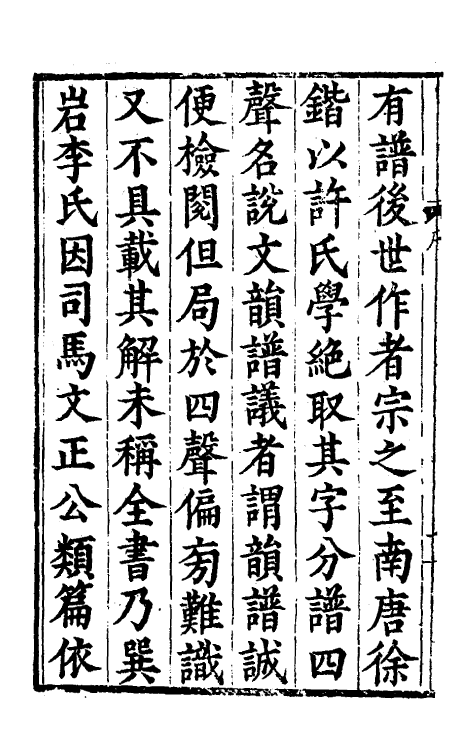 有譜後世作者宗之至南唐徐
鍇以許氏學絶取其字分譜四
聲名說文韻譜議者謂韻譜誠
便檢閱但局於四聲偏旁難識
又不具載其解未稱全書乃巽
岩李氏因司馬文正公類篇依